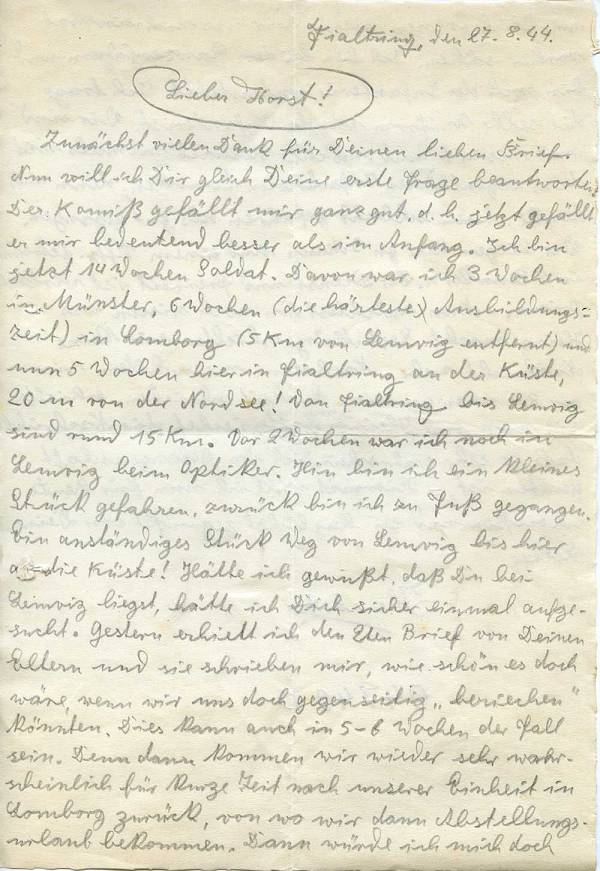 Fialtring, den 27.8.44.
Lieber Horst!
Zunächst vielen Dank für Deinen lieben Brief.
Nun will ich Dir gleich Deine erste Frage beantworten.
Der Komiß gefällt mir ganz gut, d.h. jetzt gefällt
er mir bedeutend besser als im Anfang. Ich bin
jetzt 14 Wochen Soldat. Davon war ich 3 Wochen
in Münster, 6 Wochen (die härteste) Ausbildungs=
zeit) in Lomborg (5 Km von Lemvig entfernt) und
nun 5 Wochen hier in Fialtring an der Küste,
20 m von der Nordsee! Von Fialtring bis Lemvig
sind rund 15 Km. Vor 2 Wochen war ich noch in
Lemvig beim Optiker. Hin bin ich ein kleines
Stück gefahren, zurück bin ich zu Fuß gegangen.
Ein anständiges Stück Weg von Lemvig bis hier
a die Küste! Hätte ich gewußt, daß Du bei
Lemvig liegst, hätte ich Dich sicher einmal aufge-
sucht. Gestern erhielt ich den 2ten Brief von Deinen
Eltern und sie schrieben mir, wie schön es doch
wäre, wenn wir uns doch gegenseitig „beriechen"
könnten. Dies kann auch in 5-6 Wochen der Fall
sein. Denn dann kommen wir wieder sehr wahr-
scheinlich für kurze Zeit nach unserer Einheit in
Lomborg zurück, von wo wir dann Abstellungs-
urlaub bekommen. Dann würde ich mich doch